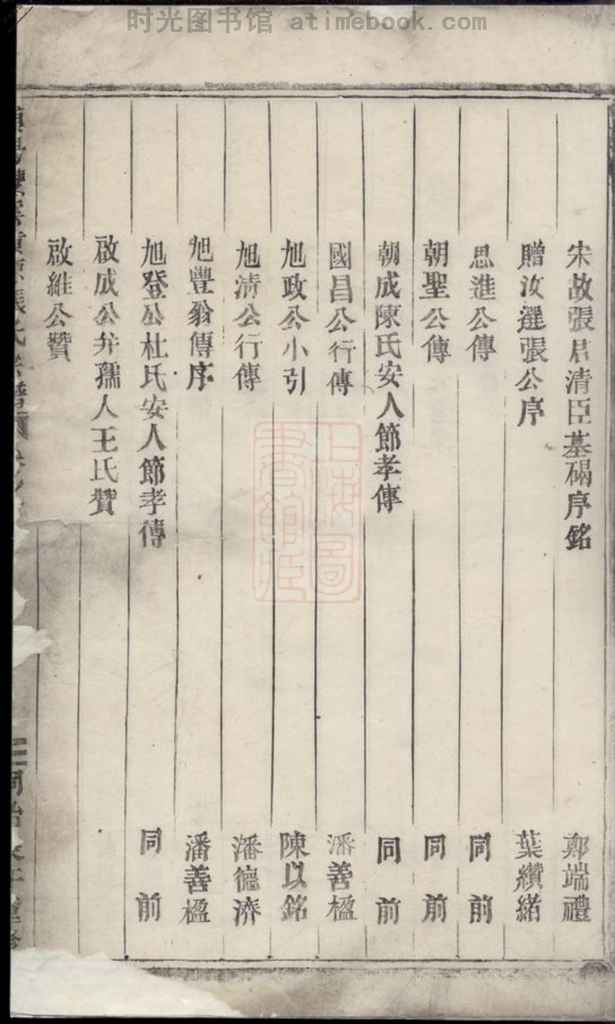 时光图书馆 atimebook.com
宋故張君清臣墓碣序銘 鄭端禮
贈汝選張公序 葉纘緒
思進公傳 同前
朝聖公傳 同前
朝成陳氏安人節孝傳 同前
國昌公行傳 潘善楹
旭政公小引 陳以銘
旭清公行傳 潘德濟
旭豐翁傳序 潘善楹
旭登公杜氏安人節孝傳 同前
啟成公弁孺人王氏贊
啟維公贊